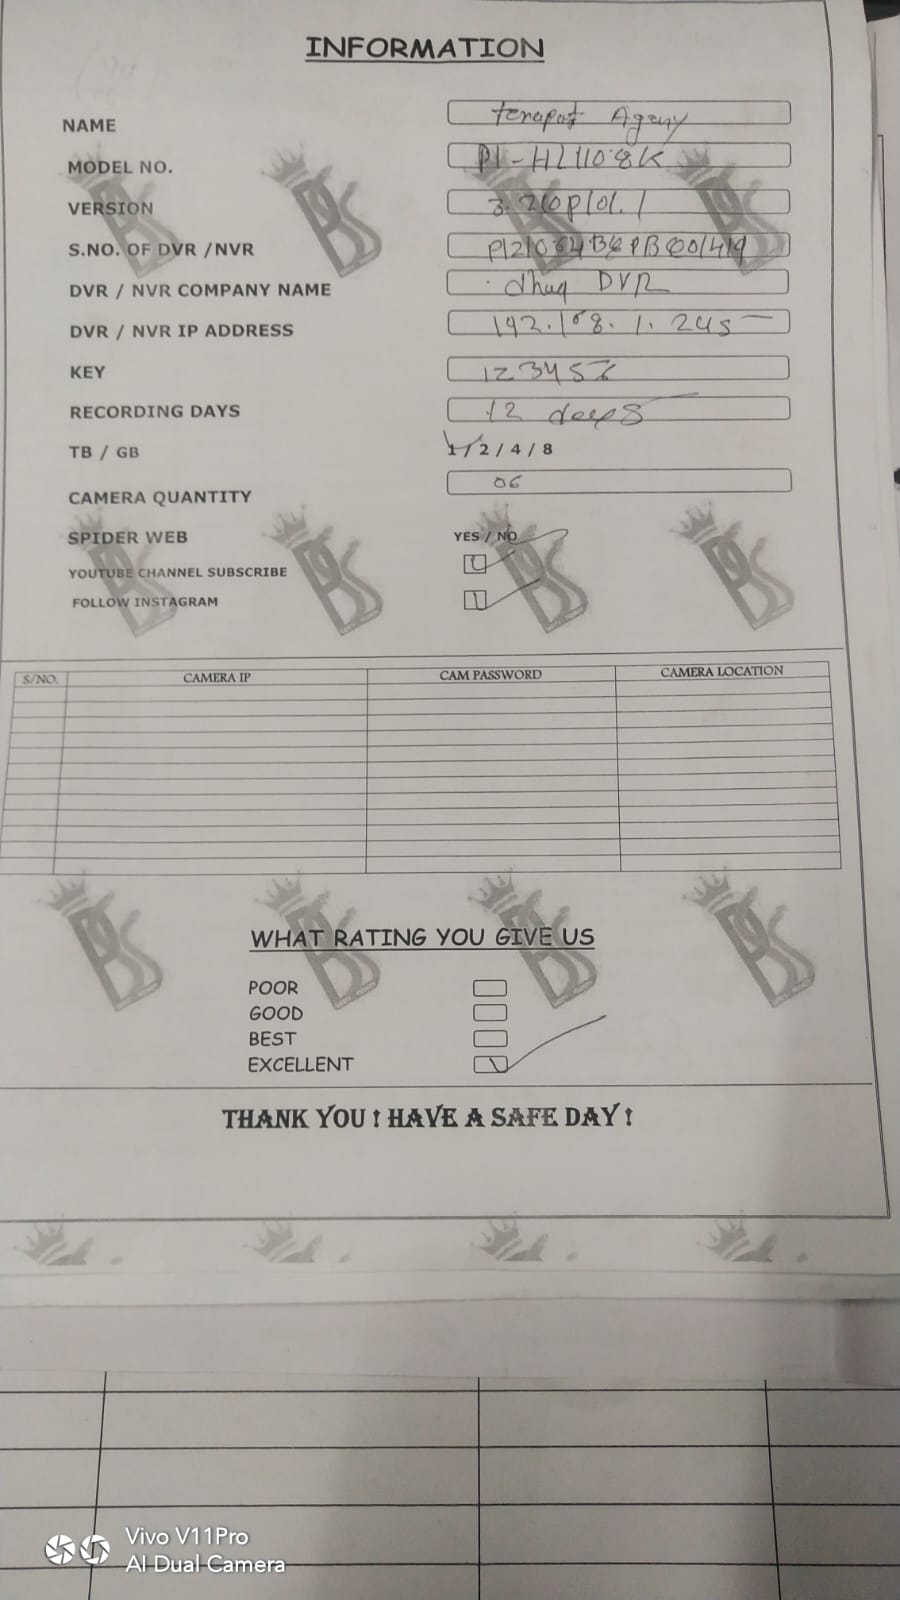 INFORMATION
NAME
MODEL NO.
VERSION
S.NO. OF DVR /NVR
DVR / NVR COMPANY NAME DVR
DVR / NVR IP ADDRESS
KEY 123456
RECORDING DAYS 12 days
TB / GB 1 / 2 / 4 / 8
CAMERA QUANTITY 06
SPIDER WEB YES / NO
YOUTUBE CHANNEL SUBSCRIBE
FOLLOW INSTAGRAM
S/NO. CAMERA IP CAM PASSWORD CAMERA LOCATION
WHAT RATING YOU GIVE US
POOR
GOOD
BEST
EXCELLENT
THANK YOU ! HAVE A SAFE DAY !
Vivo V11Pro
AI Dual Camera